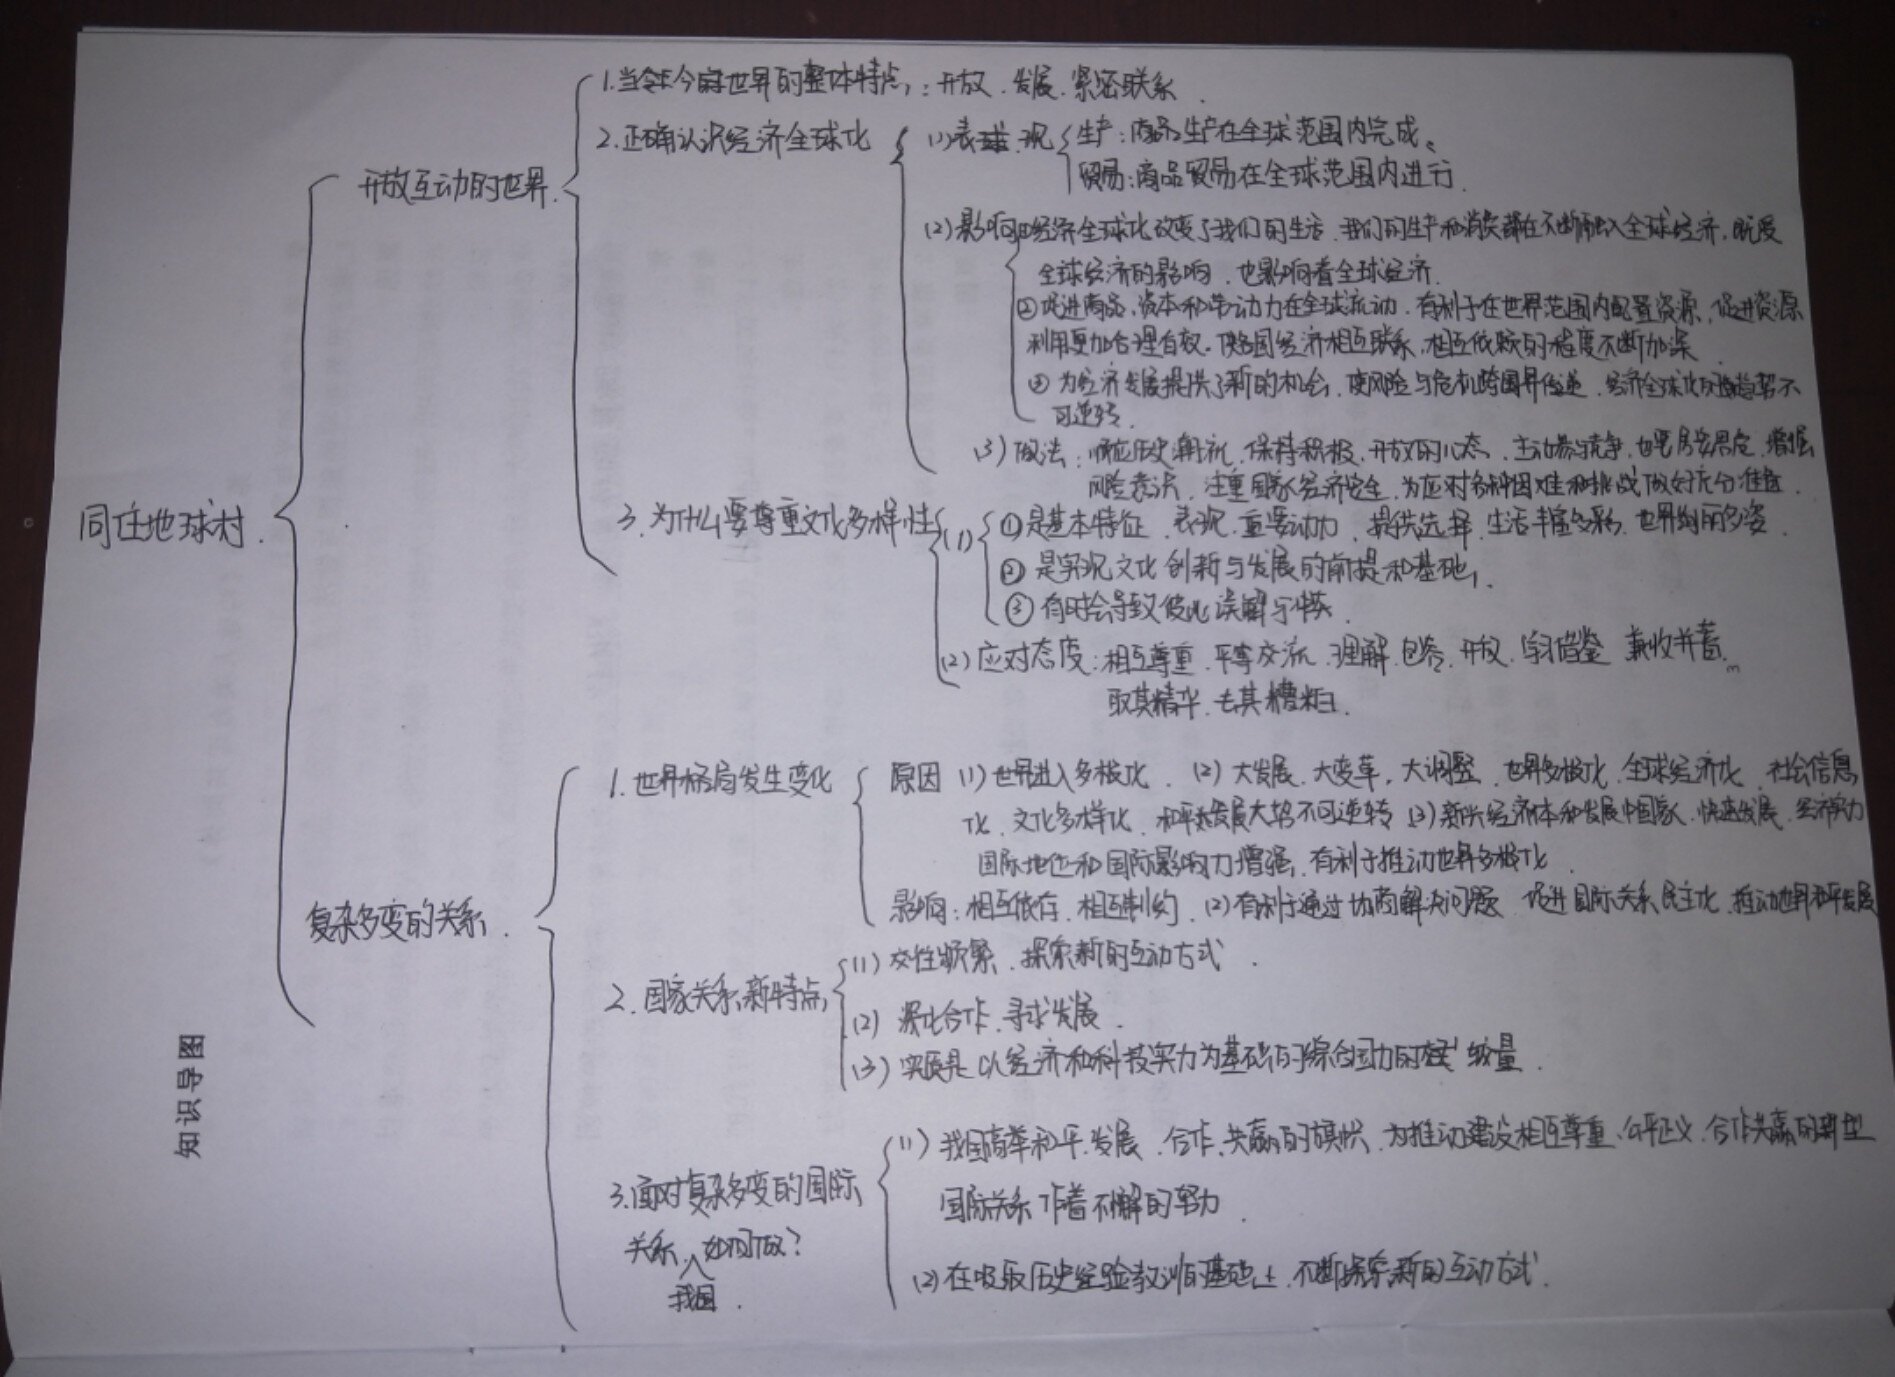 知识导图
同住地球村.
开放互动的世界.
1.当今世界的整体特点:开放、发展、紧密联系.
2.正确认识经济全球化
(1)表现
生产:商品生产在全球范围内完成。
贸易:商品贸易在全球范围内进行.
(2)影响①经济全球化改变了我们的生活.我们的生产和消费都在不断融入全球经济,既受
全球经济的影响,也影响着全球经济.
②促进商品、资本和劳动力在全球流动.有利于在世界范围内配置资源,促进资源
利用更加合理有效.使各国经济相互联系,相互依赖的程度不断加深
③为经济发展提供了新的机会,使风险与危机跨国界传递.经济全球化发展趋势不
可逆转.
(3)做法:顺应历史潮流.保持积极、开放的心态、主动参与竞争,也要居安思危,增强
风险意识,注重国家经济安全,为应对各种困难和挑战做好充分准备.
3.为什么要尊重文化多样性
(1)①是基本特征、表现、重要动力、提供选择、生活丰富多彩、世界绚丽多姿.
②是实现文化创新与发展的前提和基础,
③有时会导致彼此误解与
(2)应对态度:相互尊重、平等交流、理解、包容、开放、学习借鉴 兼收并蓄
取其精华、去其糟粕.
复杂多变的关系.
1.世界格局发生变化
原因(1)世界进入多极化.(2)大发展、大变革,大调整、世界多极化、全球经济化、社会信息
化、文化多样化、和平发展大势不可逆转(3)新兴经济体和发展中国家、快速发展、经济实力
国际地位和国际影响力增强,有利于推动世界多极化.
影响:相互依存、相互制约、(2)有利于通过协商解决问题 促进国际关系民主化、推动世界和平发展
2.国家关系新特点
(1)交往频繁、探索新的互动方式.
(2)深化合作、寻求发展.
(3)实质是以经济和科技实力为基础的综合国力的较量.
3.面对复杂多变的国际
关系,我国如何做?
(1)我国高举和平、发展、合作、共赢的旗帜,为推动建设相互尊重、公平正义、合作共赢的新型
国际关系作着不懈的努力.
(2)在吸取历史经验教训的基础上,不断探索新的互动方式.